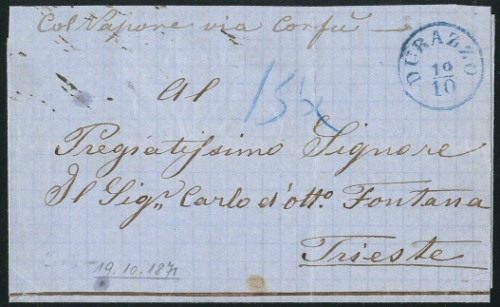 Col Vapore via Corfù
DURAZZO
19/10
15
Al
Pregiatissimo Signore
Il Sigr. Carlo d'otto. Fontana
Trieste
19.10.1871